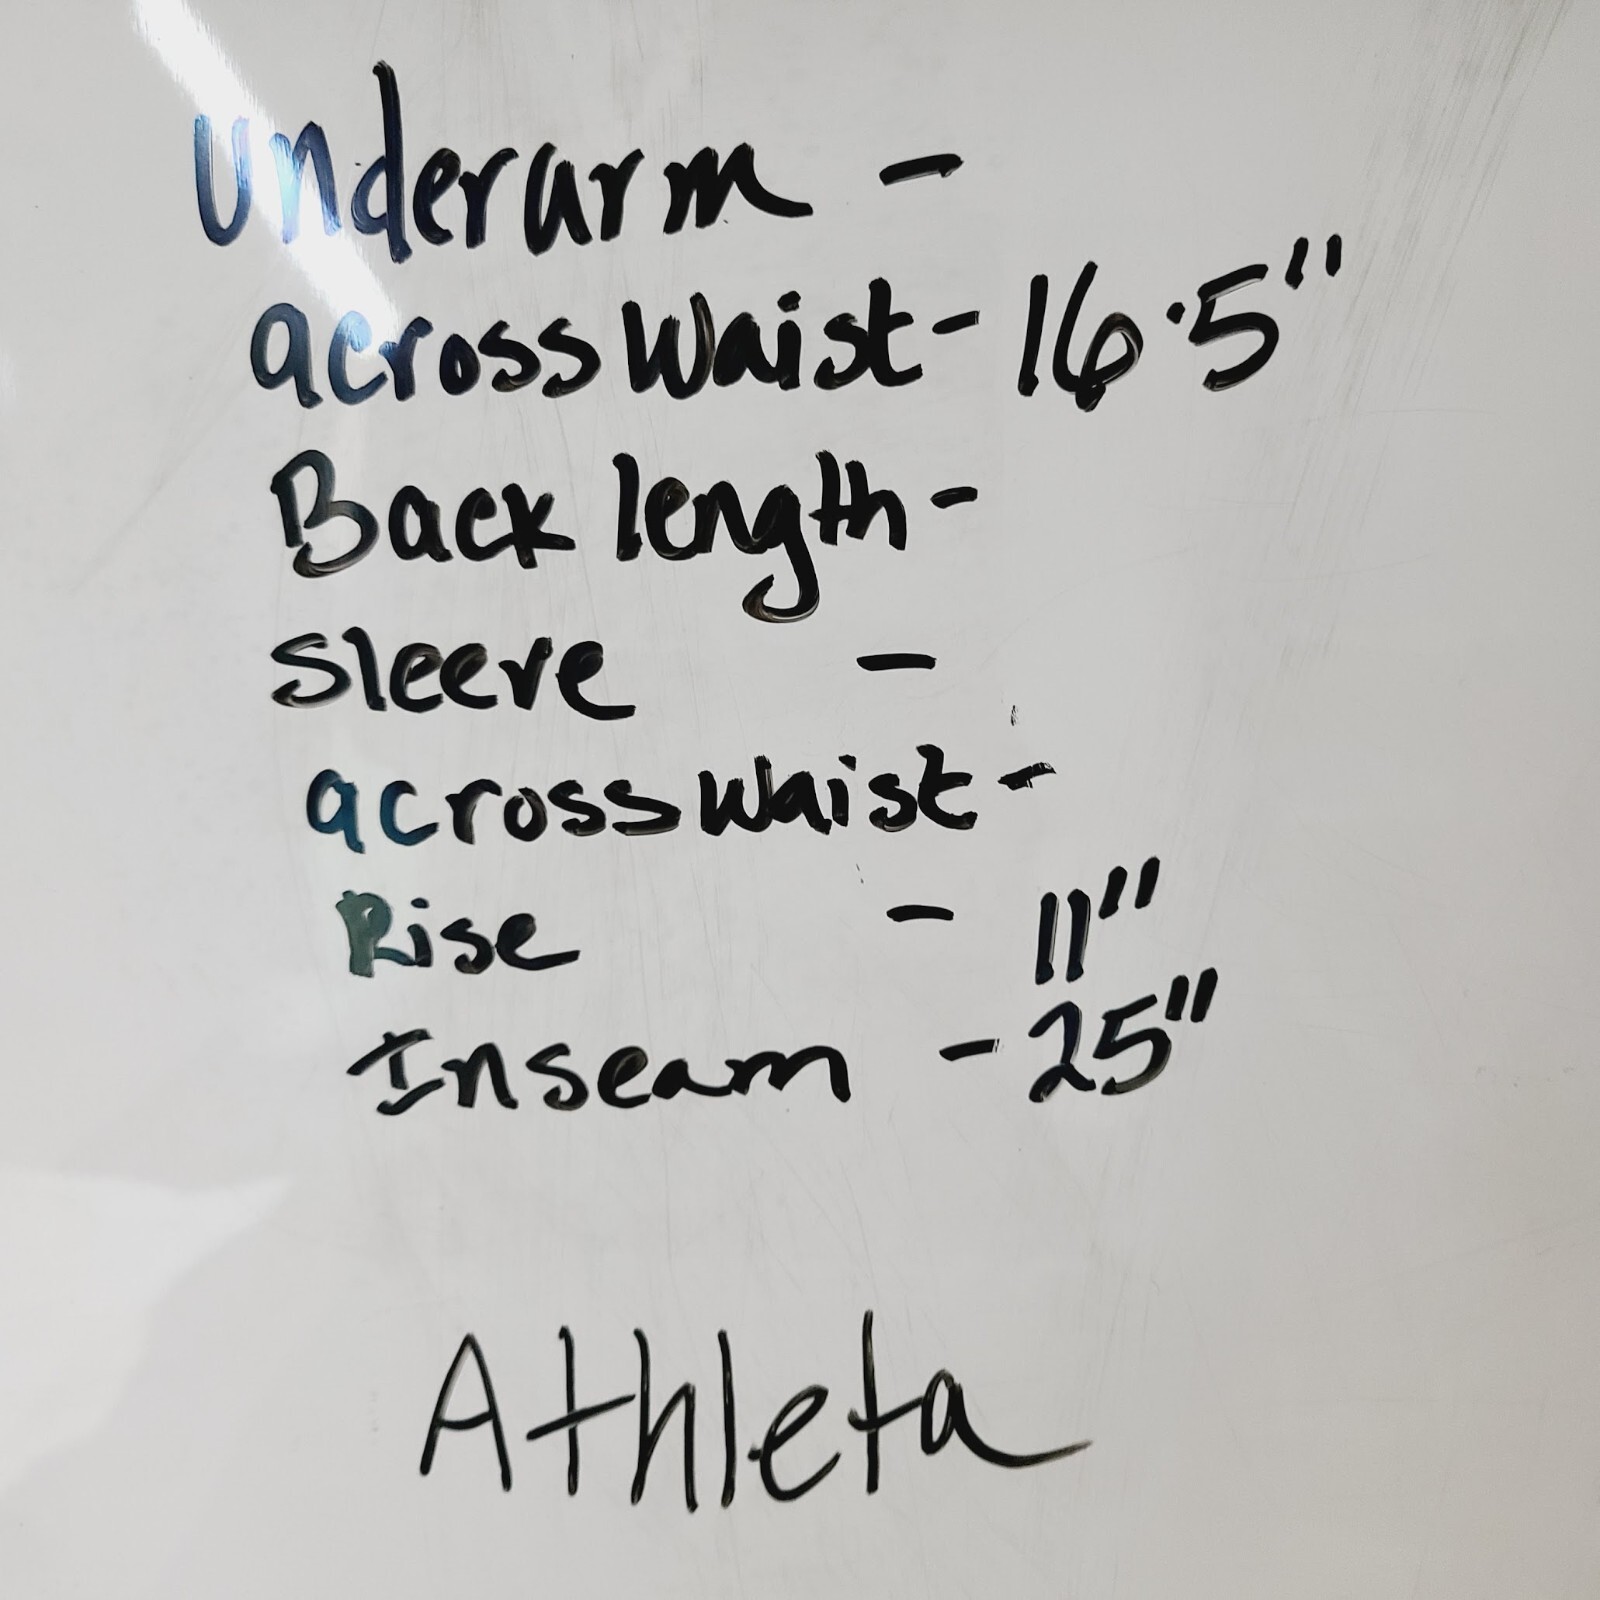 Underarm -
across Waist - 16.5"
Back length -
Sleeve -
across waist -
Rise - 11"
Inseam - 25"
Athleta